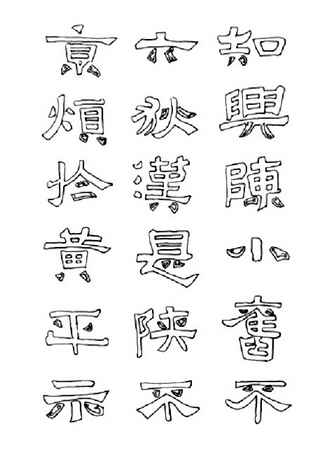 知興陳小舊不
六秋漢是陝不
京煩拾黃平示